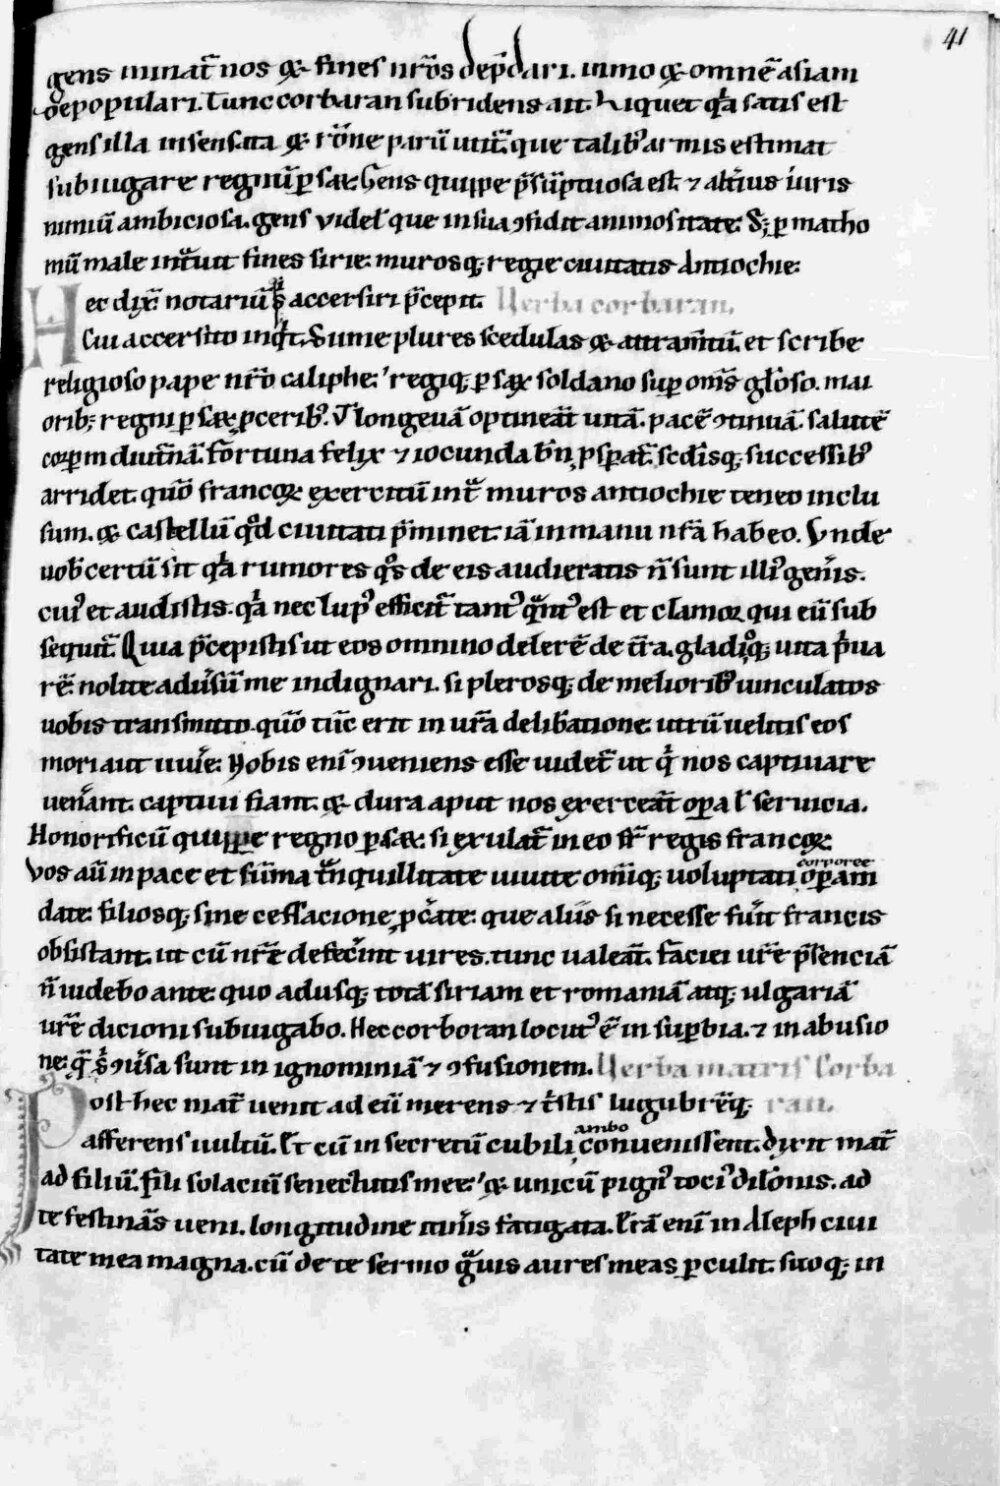 41
gens minat̄ nos & fines nr̄os dep̄dari. inmo & omnē asiam
depopulari. Tunc corbaran subridens ait. Liquet qͥa satis est
gens illa insensata & rōne parū utit̄. que talibꝰ armis estimat
subiugare regnū ꝑsaꝝ. Gens quippe p̄sūptuosa est. ⁊ alt̄ius iuris
nimiū ambiciosa. gens videlꝰ que in sua ꝯfidit animositate. Sꝫ ꝑ matho
mū male int͛uit fines sirie. murosqꝫ regie ciuitatis Antiochie.
Hec dix̄. notariū sͥ accersiri p̄cepit. Verba corbaran.
Cui accersito inqͥt. Sume plures scedulas & attram̄tū. et scribe
religioso pape nr̄o caliphe. regiqꝫ ꝑsaꝝ soldano suꝑ om̄s glōso. mai
oribꝫ regni ꝑsaꝝ ꝓceribꝰ. Vt longeuā optineat̄ uitā. pacē ꝯtinuā. salutē
corꝑm diut̄nā. fortuna felix ⁊ iocunda bn̄ ꝓsꝑat̄. sedisqꝫ successibꝰ
arridet. quō francoꝝ exercitū int͛ muros antiochie teneo inclu
sum. & castellū qͦd ciuitati p̄minet. iā in manu nr̄a habeo. Vnde
uob̄ certū sit qͥa rumores qͦs de eis audieratis n̄ sunt illiꝰ gen̄is.
cuiꝰ et audistis. qͥa nec lupꝰ efficit̄ tantꝰ qͣntꝰ est et clamor qui eū sub
sequit̄. Quia p̄cepistis ut eos omnino delerē de t̄ra. gladioqꝫ uita p̄ua
rē. nolite adūsū me indignari. si plerosqꝫ de melioribꝰ uinculatos
uobis transmitto. quō tūc erit in ur̄a delib̄atione utrū uelitis eos
mori aut uiuͤe. Nobis enī ꝯueniens esse uidet̄ ut qͥ nos captiuare
uen̄ant. captiui fiant. & dura aput nos exerceat̄ oꝑa ł seruicia.
Honorificū quippe regno ꝑsaꝝ. si exulat̄ in eo fr̄ regis francoꝝ.
Vos aū in pace et sūma tͣnquillitate uiuite om̄iqꝫ uoluptati corporee oꝑam
date. filiosqꝫ sine cessacione ꝓcͤate. que aliis si necesse fuͥit francis
obsistant. ut cū nr̄e defec̄int uires. tunc ualeāt. faciei ur̄e p̄senciā
n̄ uidebo ante quo adusqꝫ totā siriam et romaniā atqꝫ ulgariā
ur̄e dicioni subiugabo. Hec corboran locutꝰ ē in suꝑbia. ⁊ in abusio
ne. q̄ sͥ ꝯūsa sunt in ignominiā ⁊ ꝯfusionem. Verba matris Corba
Post hec mat̄ uenit ad eū merens ⁊ tͥstis lugubrēqꝫ ran.
afferens uultū. Et cū in secretū cubili ambo conuenissent. dixit mat̄
ad filiū. fili solaciū senectutis mee. & unicū pignꝰ tociꝰ dilōnis. ad
te festināns ueni. longitudine itin̄is fatigata. Erā enī in Aleph ciui
tate mea magna. cū de te sermo gͣuis aures meas ꝑculit. sitoqꝫ in